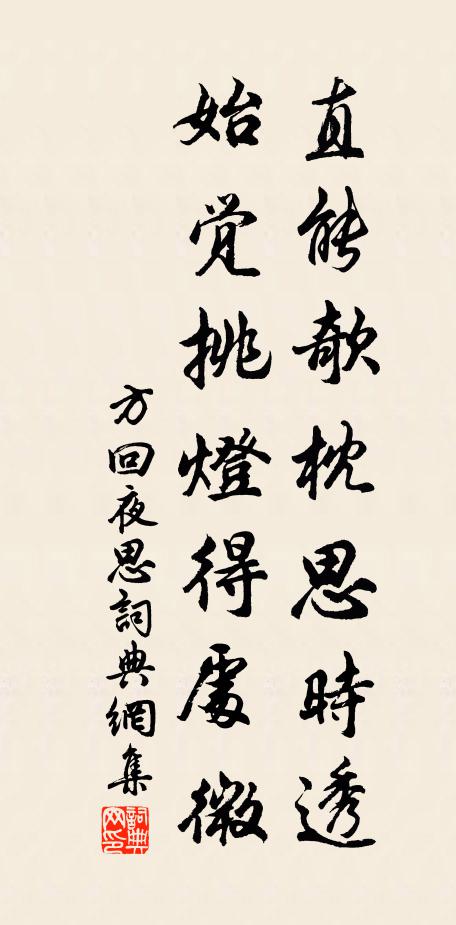 直能欹枕思時透
始覺挑燈得處微
方回夜思詞典網集
詞典網印